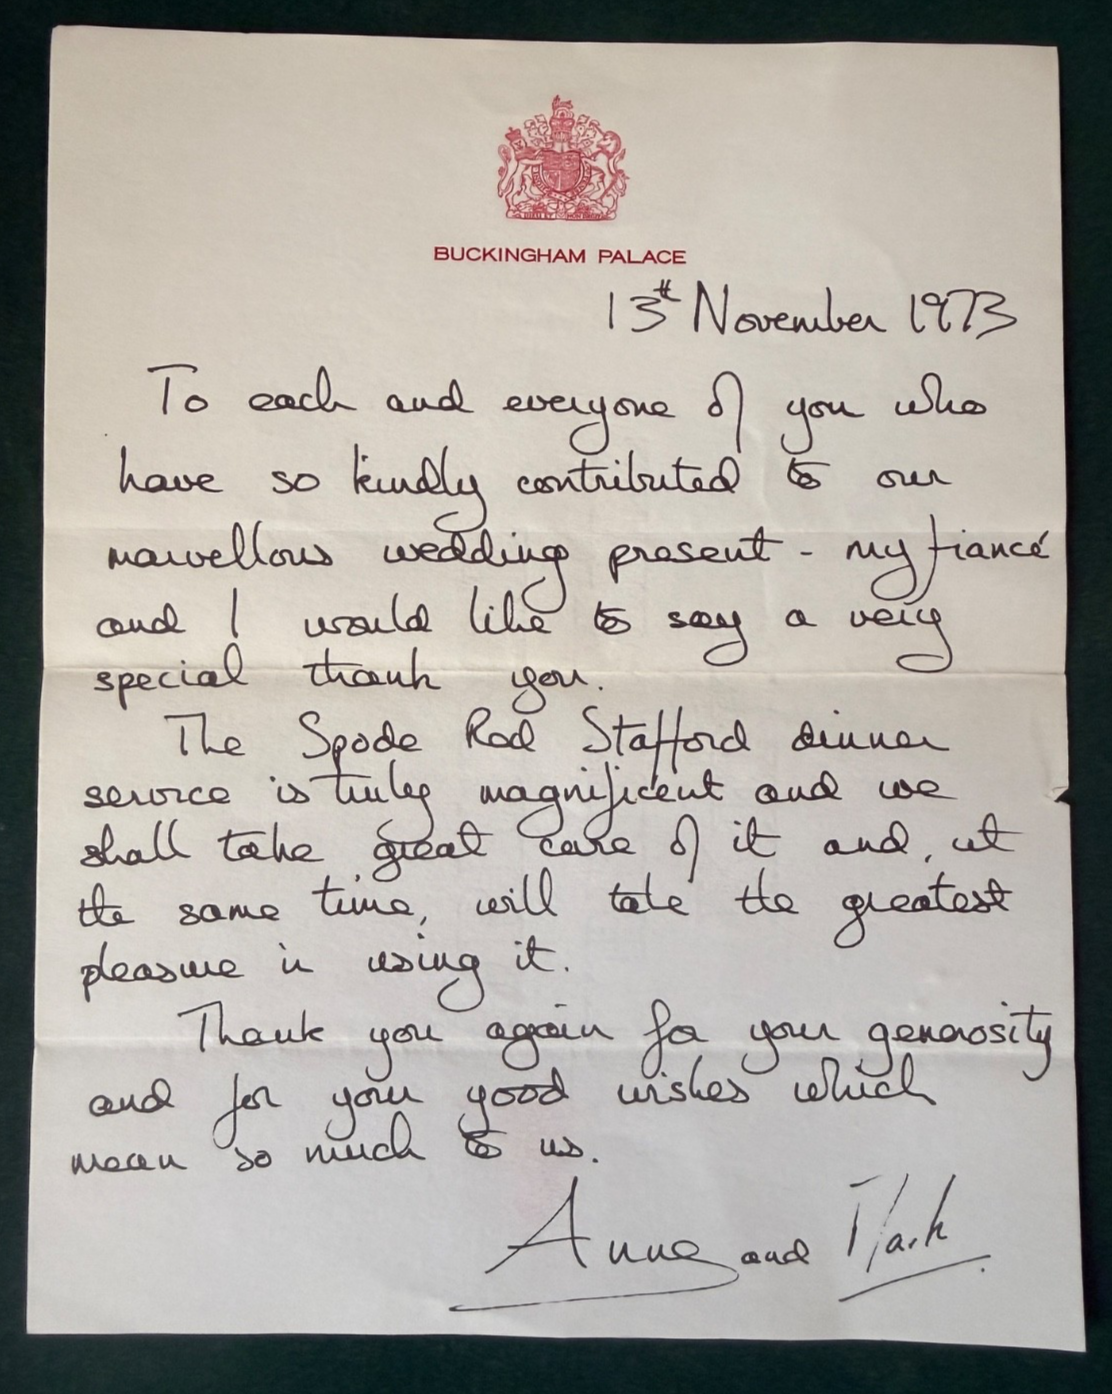 BUCKINGHAM PALACE
13th November 1973
To each and everyone of you who
have so kindly contributed to our
marvellous wedding present - my fiancé
and I would like to say a very
special thank you.
The Spode Red Stafford dinner
service is truly magnificent and we
shall take great care of it and, at
the same time, will take the greatest
pleasure in using it.
Thank you again for your generosity
and for your good wishes which
mean so much to us.
Anne and Mark.